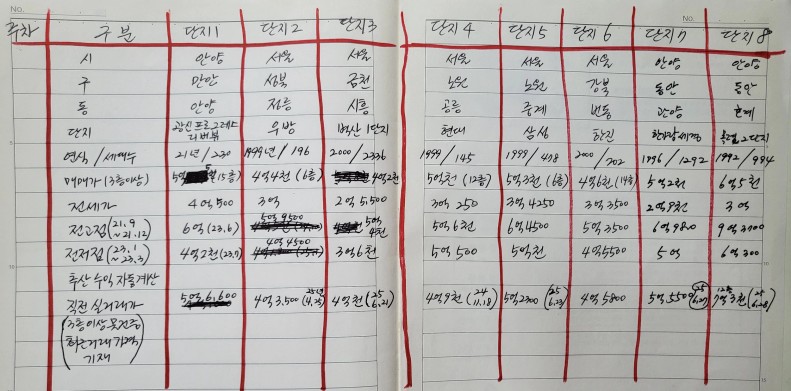 No.
No.
주차 구분 단지1 단지2 단지3 단지4 단지5 단지6 단지7 단지8
시 안양 서울 서울 서울 서울 서울 안양 안양
구 만안 성북 금천 노원 노원 강북 동안 동안
동 안양 정릉 시흥 공릉 중계 번동 관양
단지 광신프로그레스 리버뷰 우방 벽산 1단지 현대 삼성 한진 2단지
연식 / 세대수 21년 / 230 1999년 / 196 2000 / 2336 1999 / 145 1999 / 498 2000 / 202 1996 / 1292 1992 / 994
매매가 (3층이상) 5억 (5층) 4억4천 (6층) 4억2천 5억천 (12층) 5억3천 (6층) 4억6천 (14층) 5억2천 6억5천
전세가 4억500 3억 2억5,500 3억250 3억4250 3억3500 2억9천 3억
전고점 (21.9 ~ 21.12) 6억 (23.6) 5억9500 5억4천 5억6천 6억4500 5억3500 6억9800 9억3700
전저점 (23.1 ~ 23.3) 4억2천 (23.7) 4억4500 3억6천 5억500 5억천 4억5500 5억 6억300
환산수익 자동계산
직전 실거래가 5억6,600 4억3,500 (25년 4.25) 4억천 (25 6.21) 4억9천 (24 11.18) 5억2300 (25 6.23) 4억5800 5억5500 (25 6.27) 12층 7억3천 (25 6.28)
(3층이상 물건중
최근거래가격
기재)